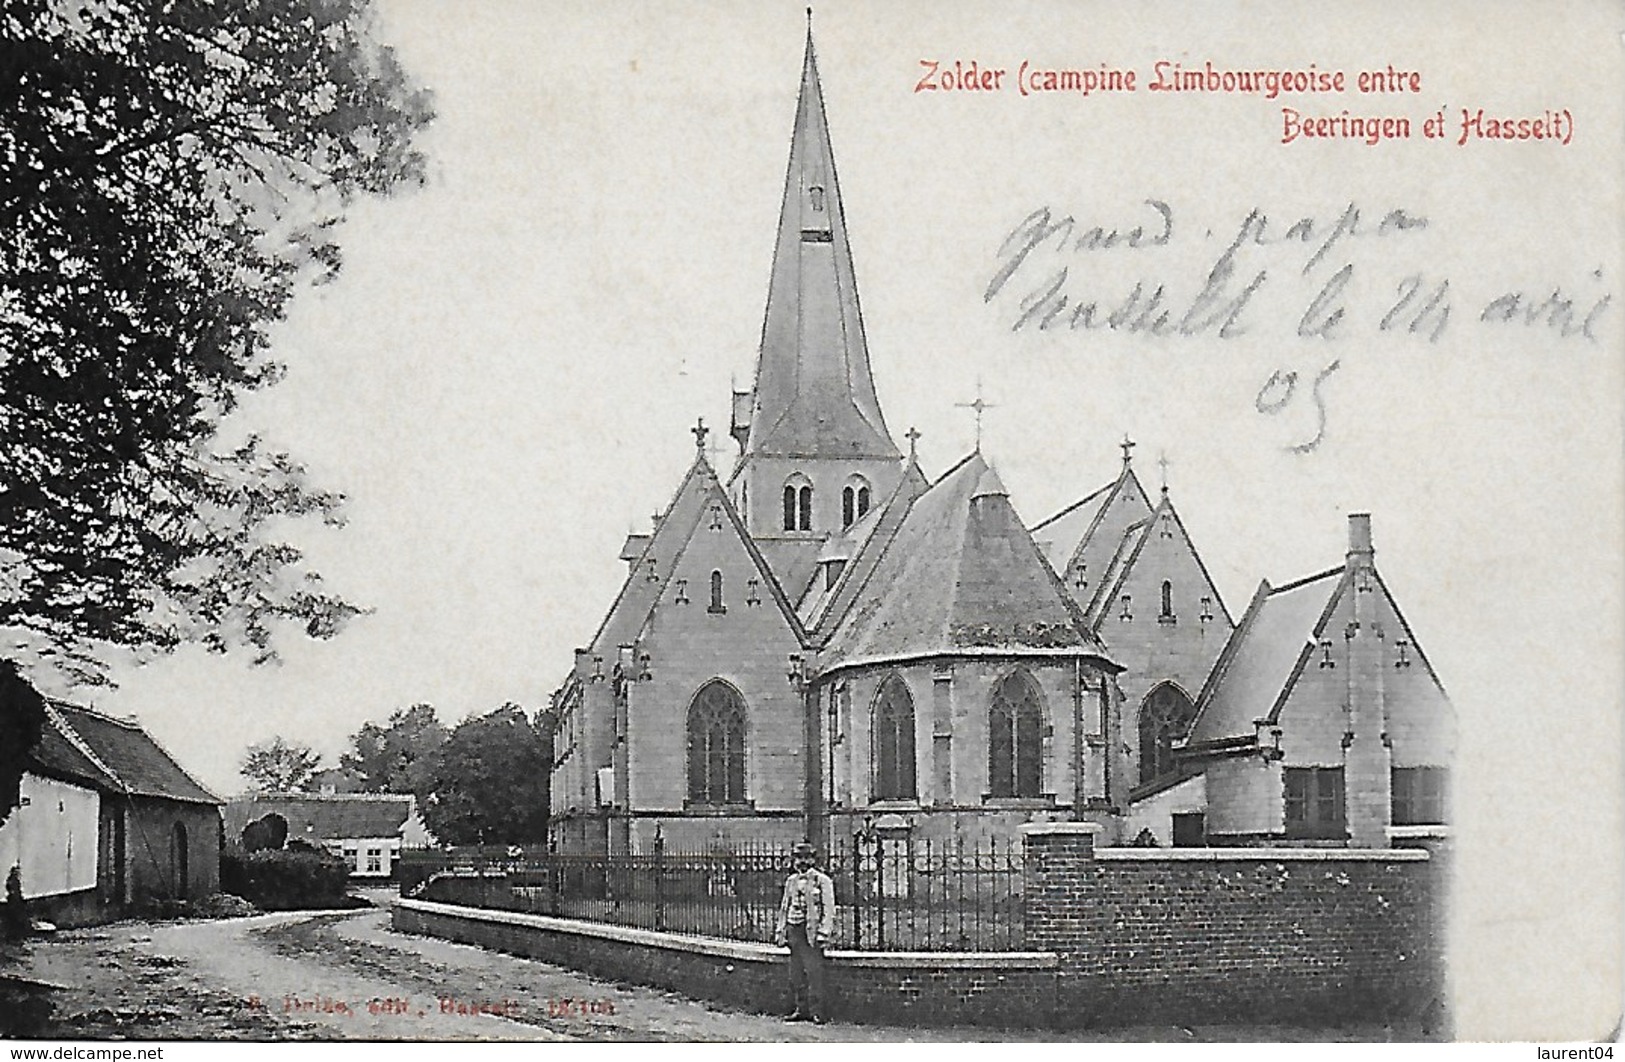 Zolder (campine Limbourgeoise entre
Beeringen et Hasselt)
grand papa
Hasselt le 24 avril
05
édit, Hasselt
www.delcampe.net
laurent04